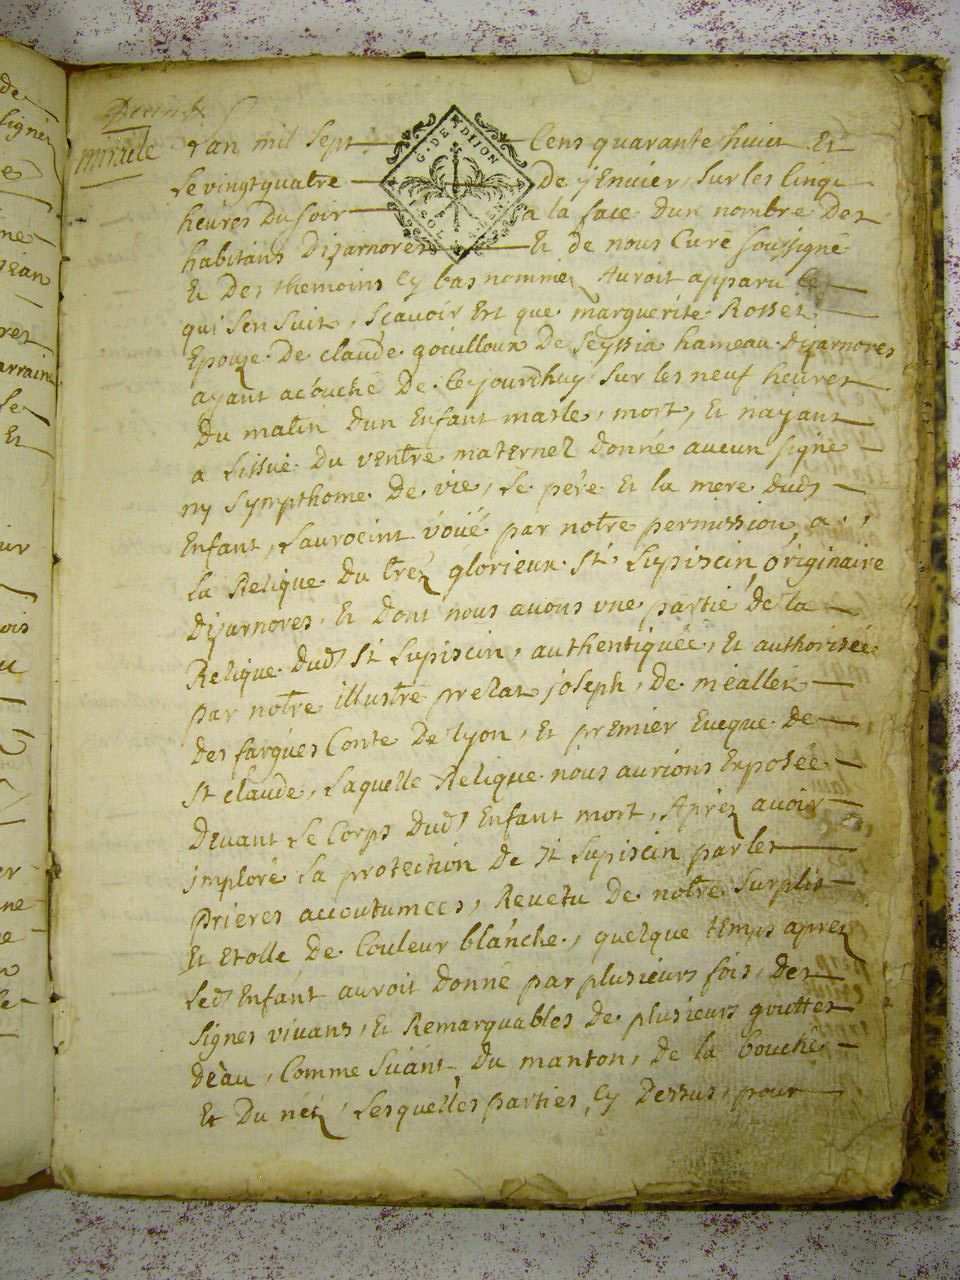 miracle
l'an mil sept Cens quarante huict Et
Le vingt quatre de jEnvier, sur les Cinq
heures Du soir a la face dun nombre Des
habitans Dizarnores Et de nous Curé soussigné
Et Des themoins Cy bas nommez Auroit apparu Ce
qui s'en suit, scavoir Est que marguerite Rosset
Epouze De claude gouilloux De seyssia hameau dizarnores
ayant acouché De Cejourdhuy sur les neuf heures
Du matin dun Enfant masle, mort, Et n'ayant
a L'issue Du ventre maternel Donné aucun signe
ny sympthome De vie, Le pere Et la mere dud
Enfant, L'auroeint voüé par notre permission a
La Relique Du trez glorieux St Lupiscin, originaire
Dizarnores, Et dont nous avons une partie de la
Relique dud St Lupiscin, authentiquée, Et authorisée
par notre illustre prelat joseph, De méallet
Des fargues Conte De Lyon, Et premier Eveque De
St claude, Laquelle Relique nous aurions Exposée
Devant Le Corps Dud Enfant mort, Aprez avoir
imploré La protection De St Lupiscin par les
Prieres accoutumées, Revetu De notre surplis
Et Etolle De Couleur blanche, quelque temps aprez
Led Enfant auroit Donné par plusieurs fois, Des
signes vivans, Et Remarquables De plusieurs gouttes
D'eau, Comme suant, Du manton, De la bouche
Et Du nétz, Lesquelles parties Cy Dessus, pour
G. DE DIJON